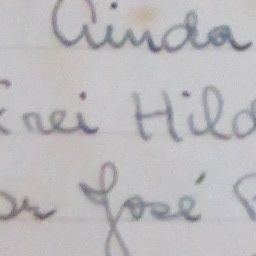 Ainda
Frei Hild
or José